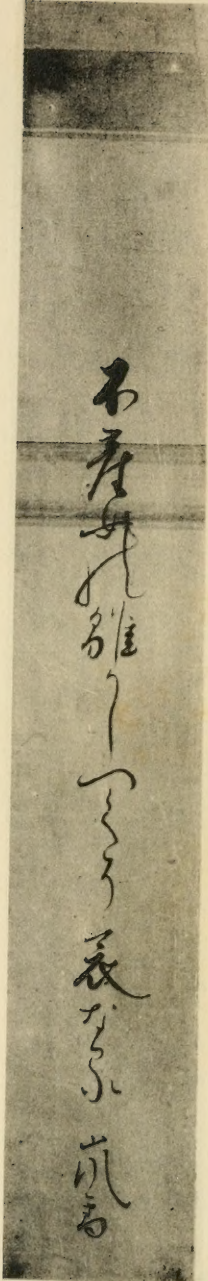 不産女の雛かしつくそ哀なる 嵐雪